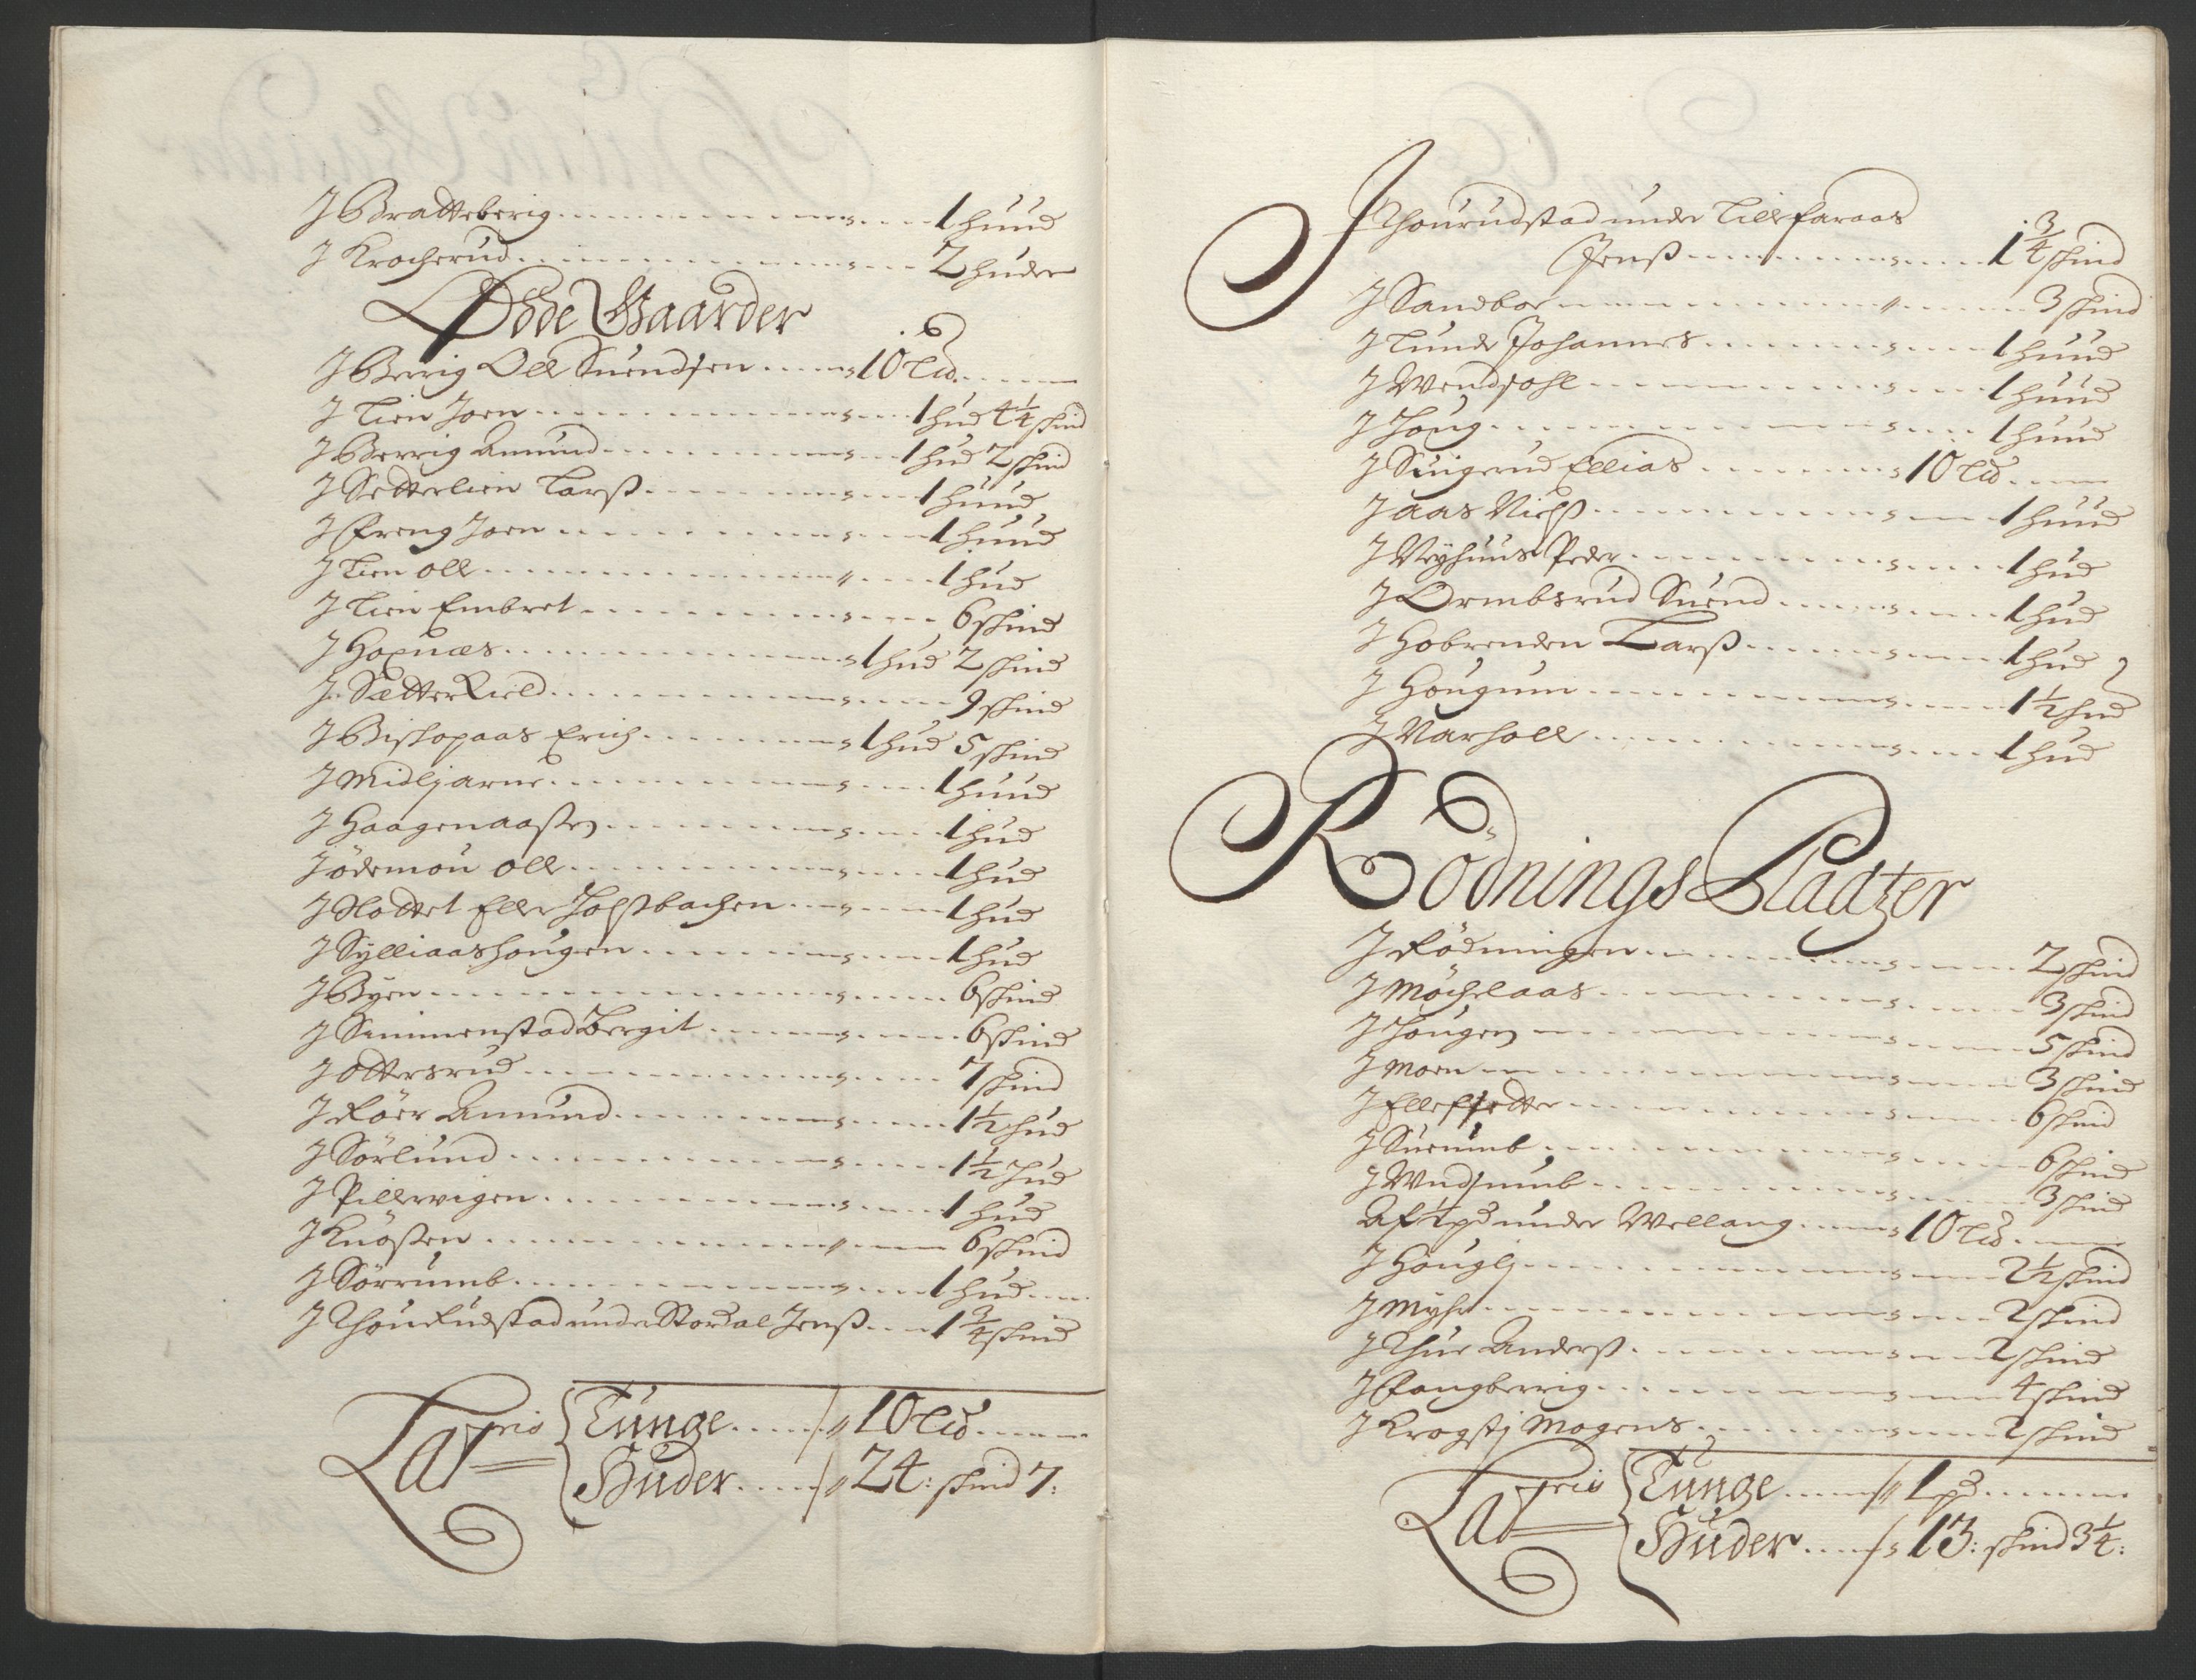 J Bratteberig 1 huud
J Krocherud 2 huder
Øde Gaarder
J Berrig Oll Suendsen 10 Lid.
J Lien Joen 1 hud 4 1/4 skind
J Berrig Amund 1 hud 2 skind
J Setterlien Larß 1 huud
J Ereng Joen 1 huud
J Lien oll 1 hud
J Lien Embret 6 skind
J Hoxnæs 1 hud 2 skind
J Sætter Kield 9 skind
J Biskopaas Erich 1 hud 5 skind
J Midtjarne 1 huud
J Haagenaasen 1 hud
J ødemou oll 1 hud
J Slottet Eller Holstbachen 1 hud
J Sylliaashougen 1 hud
J Byen 6 skind
J Simmenstad Bergit 6 skind
J Ottersrud 7 skind
J Röer Amund 1 1/2 hud
J Sörlund 1 1/2 hud
J Pillervigen 1 hud
J Knößen 6 skind
J Sörrumb 1 hud
J Thourudstad under Stordal Jenß 1 3/4 skind
Lat rio Tunge 10 Lid
Huder 24: skind 7:
J Thourudstad under Lillefaraas
Jenß 1 3/4 skind
J Sandboe 3 skind
J Lunde Johannes 1 huud
J Wendsohl 1 huud
J Houg 1 huud
J Suigerud Ellias 10 Lid
J aas Nielß 1 huud
J Nyhuus Peder 1 hud
J Ormbsrud Suend 1 hud
J Hobrenden Larß 1 hud
J Hougum 1 1/2 hud
J Narholl 1 hud
Rödnings Pladtzer
J Rödningen 2 skind
J Möchelaas 3 skind
J Hougen 5 skind
J Moen 3 skind
J Ellefsetter 6 skind
J Suenumb 6 skind
J Windsumb 3 skind
Af 1/2 pd under Wellang 10 Lid
J Hougli 2 1/2 skind
J Myhr 2 skind
J Thue Anderß 2 skind
J Fangberrig 4 skind
J Krogstj Mogens 2 skind
Lat rio Tunge 1 pd
Huder 13: skind 3 1/4: